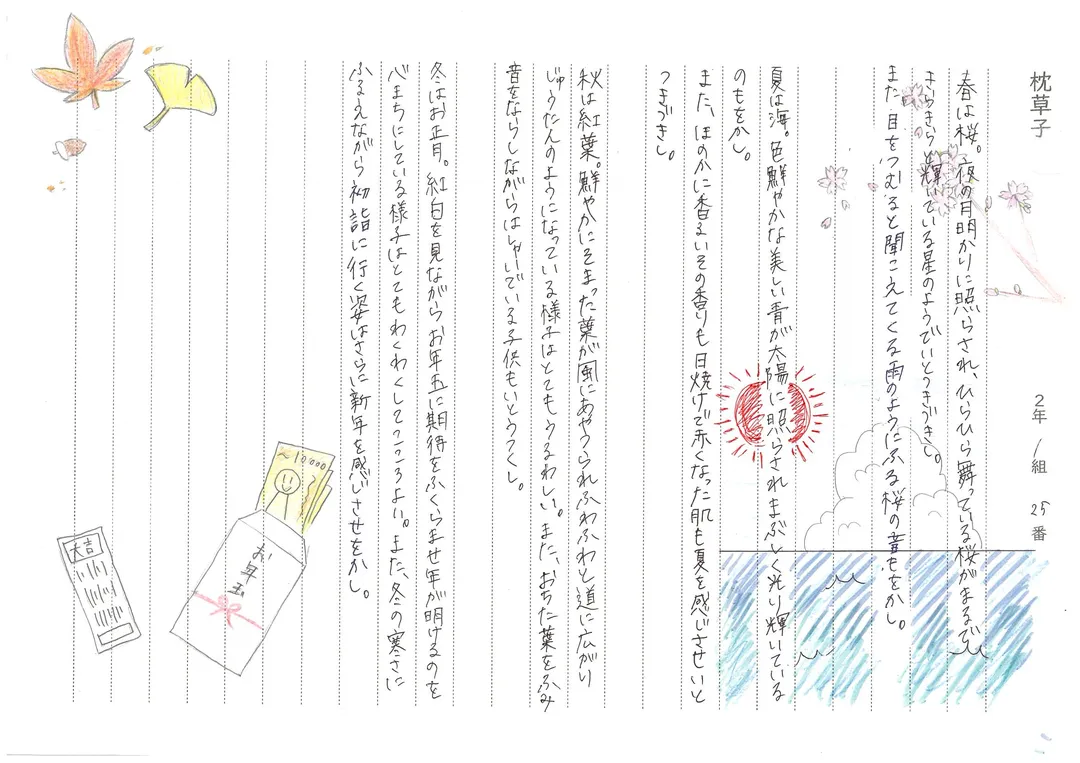 枕草子
2年 1組 25番
春は桜。夜の月明かりに照らされ、ひらひら舞っている桜がまるで
きらきらと輝いている星のようでいとつきづきし。
また目をつむると聞こえてくる雨のようにふる桜の音もをかし。
夏は海。色鮮やかな美しい青が太陽に照らされまぶしく光り輝いている
のもをかし。
また、ほのかに香るいその香りも日焼けで赤くなった肌も夏を感じさせいと
つきづきし。
秋は紅葉。鮮やかにそまった葉が風にあやつられふわふわと道に広がり
じゅうたんのようになっている様子はとてもうるわしい。また、おちた葉をふみ
音をならしながらはしゃいでいる子供もいとうつくし。
冬はお正月。紅白を見ながらお年玉に期待をふくらませ年が明けるのを
心まちにしている様子はとてもわくわくしてこころよい。また、冬の寒さに
ふるえながら初詣に行く姿はさらに新年を感じさせをかし。
10000
お年玉
大吉